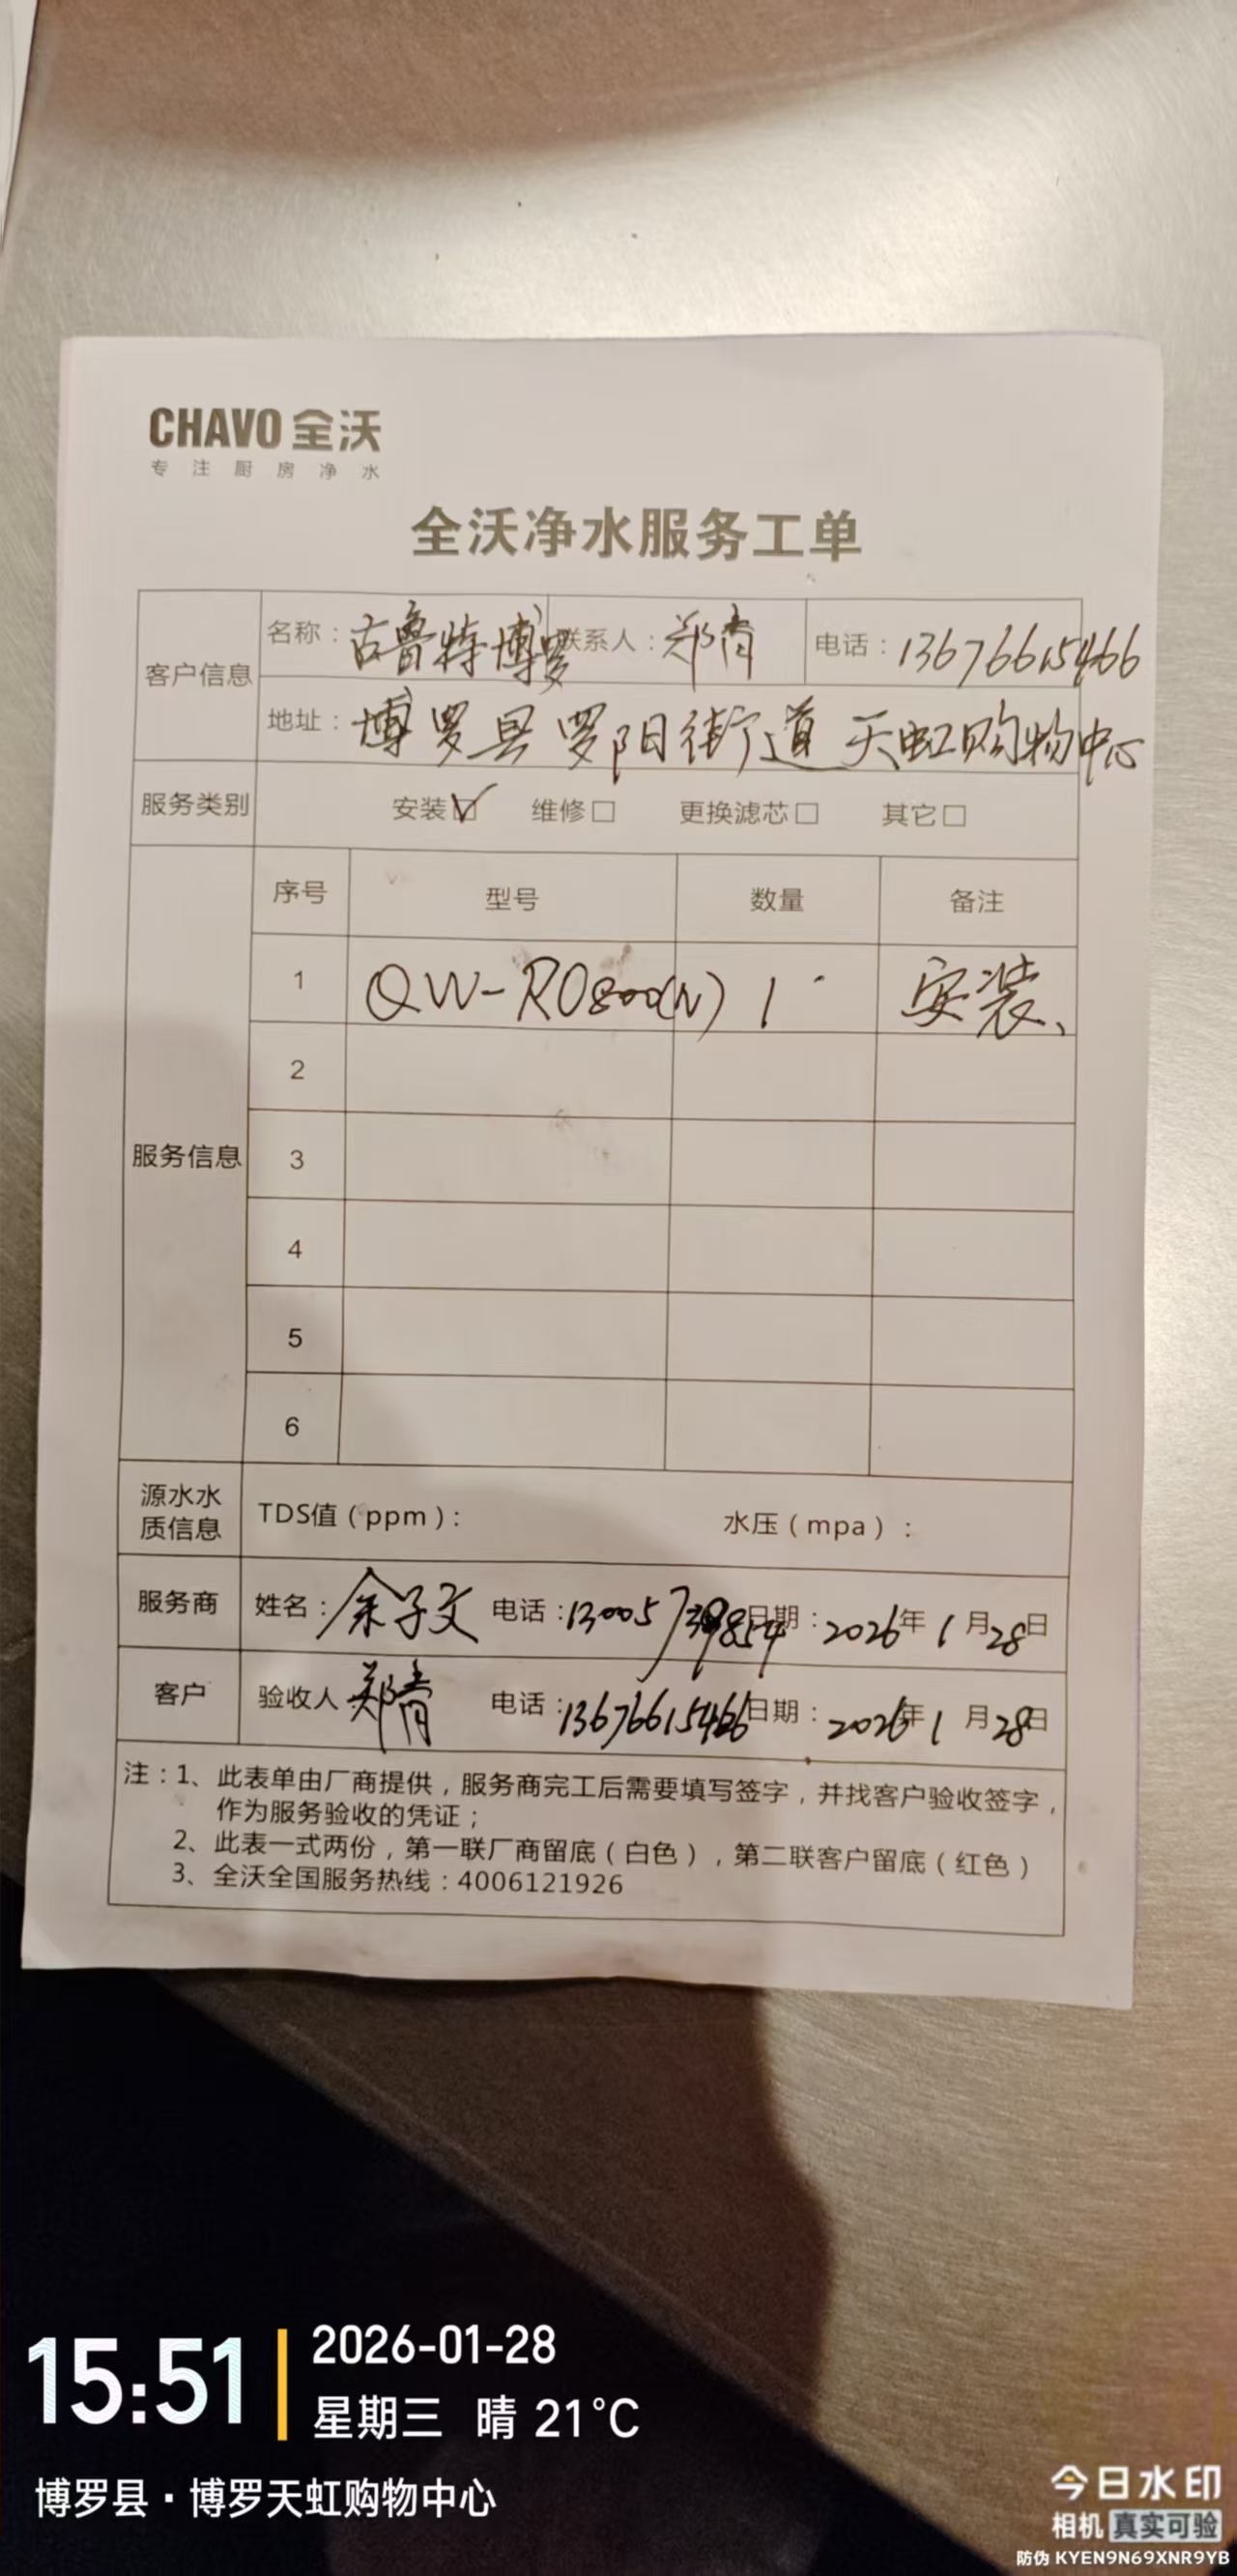 CHAVO 全沃
专注厨房净水
全沃净水服务工单
客户信息
名称：古鲁特博罗 联系人：郑青 电话：13676615466
地址：博罗县罗阳街道天虹购物中心
服务类别 安装☑ 维修□ 更换滤芯□ 其它□
服务信息
序号 型号 数量 备注
1 QW-RO800(N) 1 安装、
2
3
4
5
6
源水水质信息 TDS值（ppm）： 水压（mpa）：
服务商 姓名：余子文 电话：13005739854 日期：2026年1月28日
客户 验收人 郑青 电话：13676615466 日期：2026年1月28日
注：1、此表单由厂商提供，服务商完工后需要填写签字，并找客户验收签字，
作为服务验收的凭证；
2、此表一式两份，第一联厂商留底（白色），第二联客户留底（红色）
3、全沃全国服务热线：4006121926
15:51
2026-01-28
星期三 晴 21°C
博罗县·博罗天虹购物中心
今日水印
相机 真实可验
防伪 KYEN9N69XNR9YB